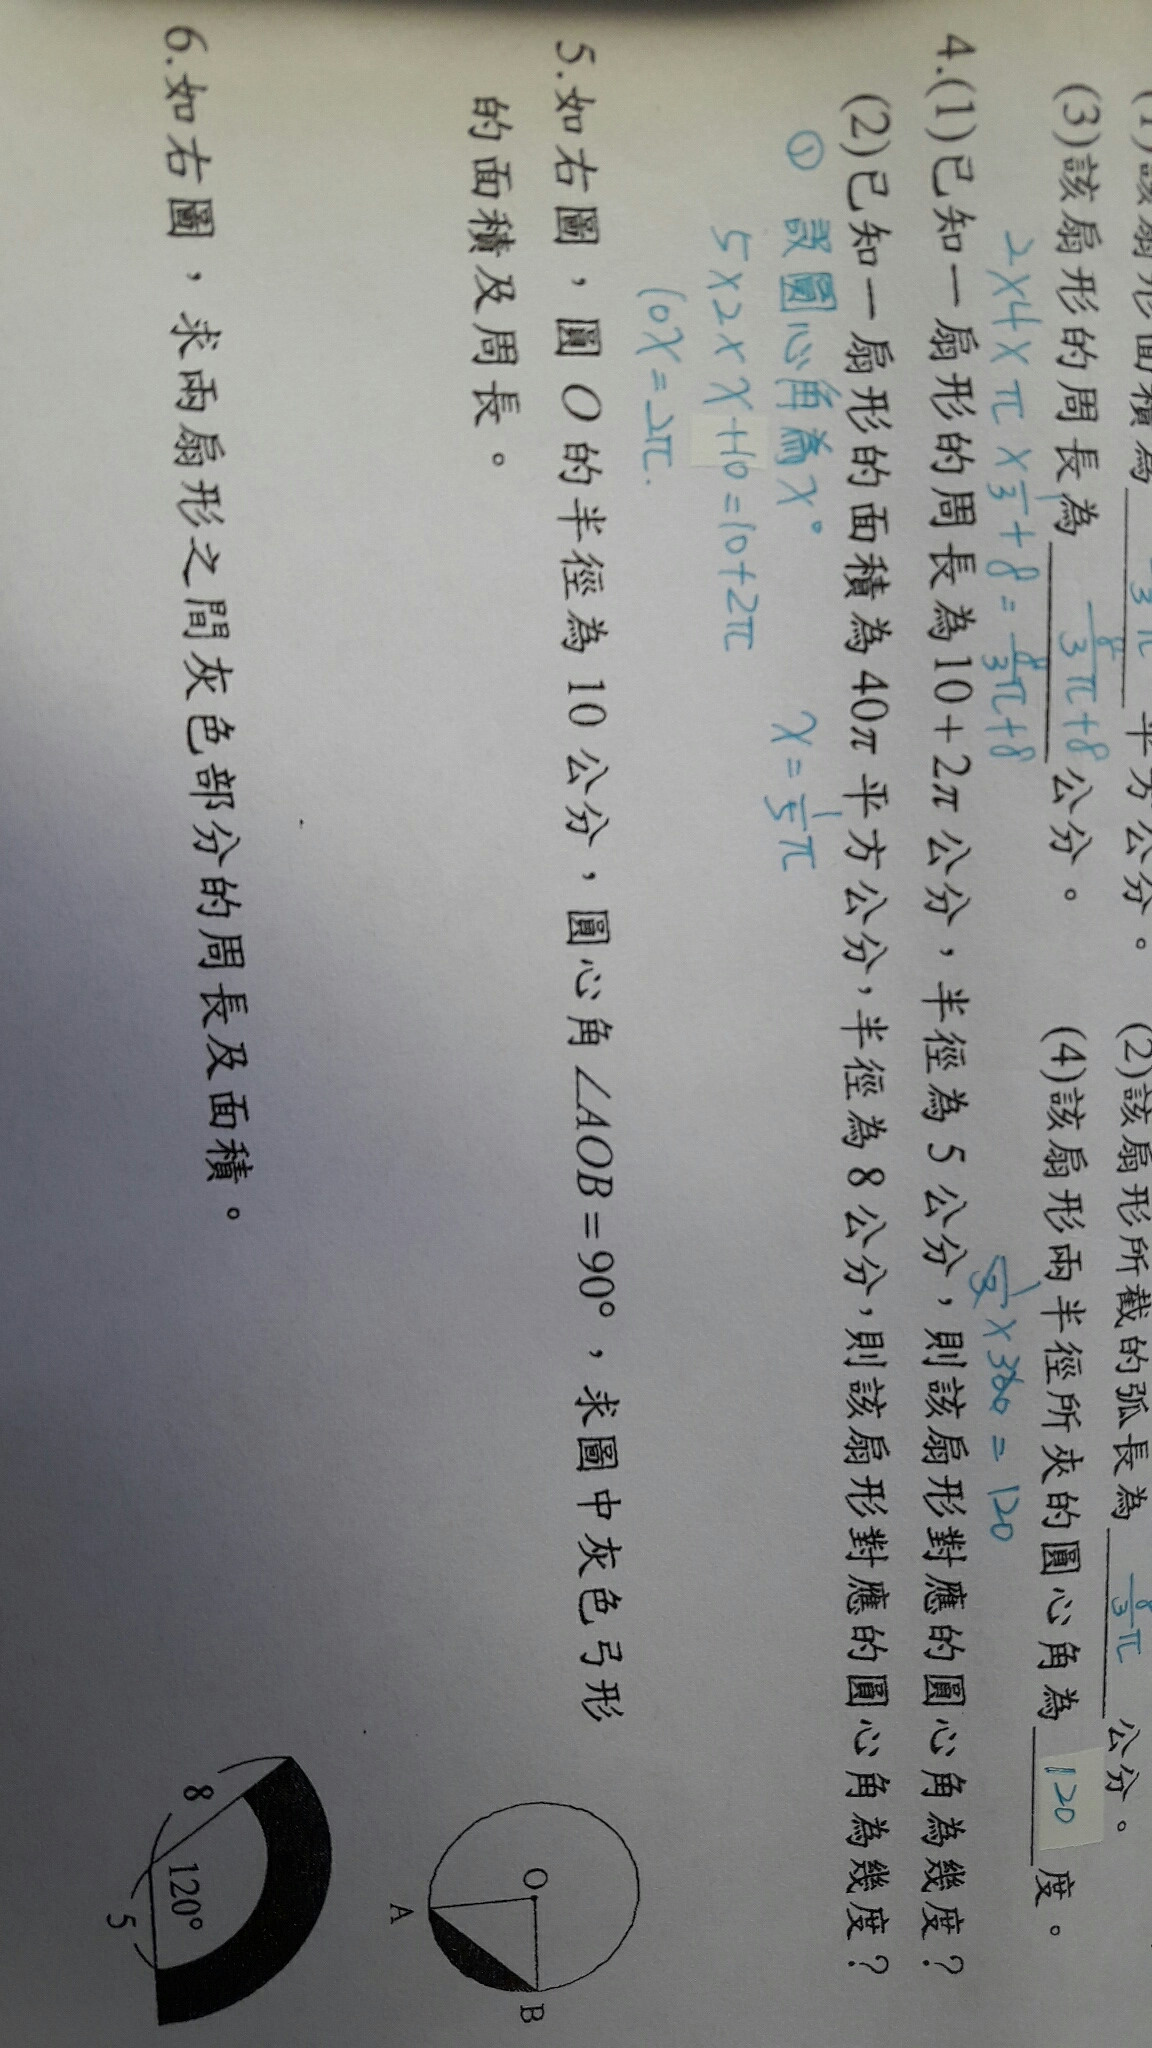 (1)該扇形面積為 平方公分。 (2)該扇形所截的弧長為 8/3 π 公分。
(3)該扇形的周長為 8/3 π+8 公分。 (4)該扇形兩半徑所夾的圓心角為 120 度。
2×4×π×1/3+8=8/3π+8 1/3×360=120
4.(1)已知一扇形的周長為10+2π公分,半徑為5公分,則該扇形對應的圓心角為幾度?
(2)已知一扇形的面積為40π平方公分,半徑為8公分,則該扇形對應的圓心角為幾度?
① 設圓心角為x°
5×2×x+10=10+2π
10x=2π.
x=1/5π
5.如右圖,圓O的半徑為10公分,圓心角∠AOB=90°,求圖中灰色弓形
的面積及周長。
O
A
B
6.如右圖,求兩扇形之間灰色部分的周長及面積。
8
120°
5